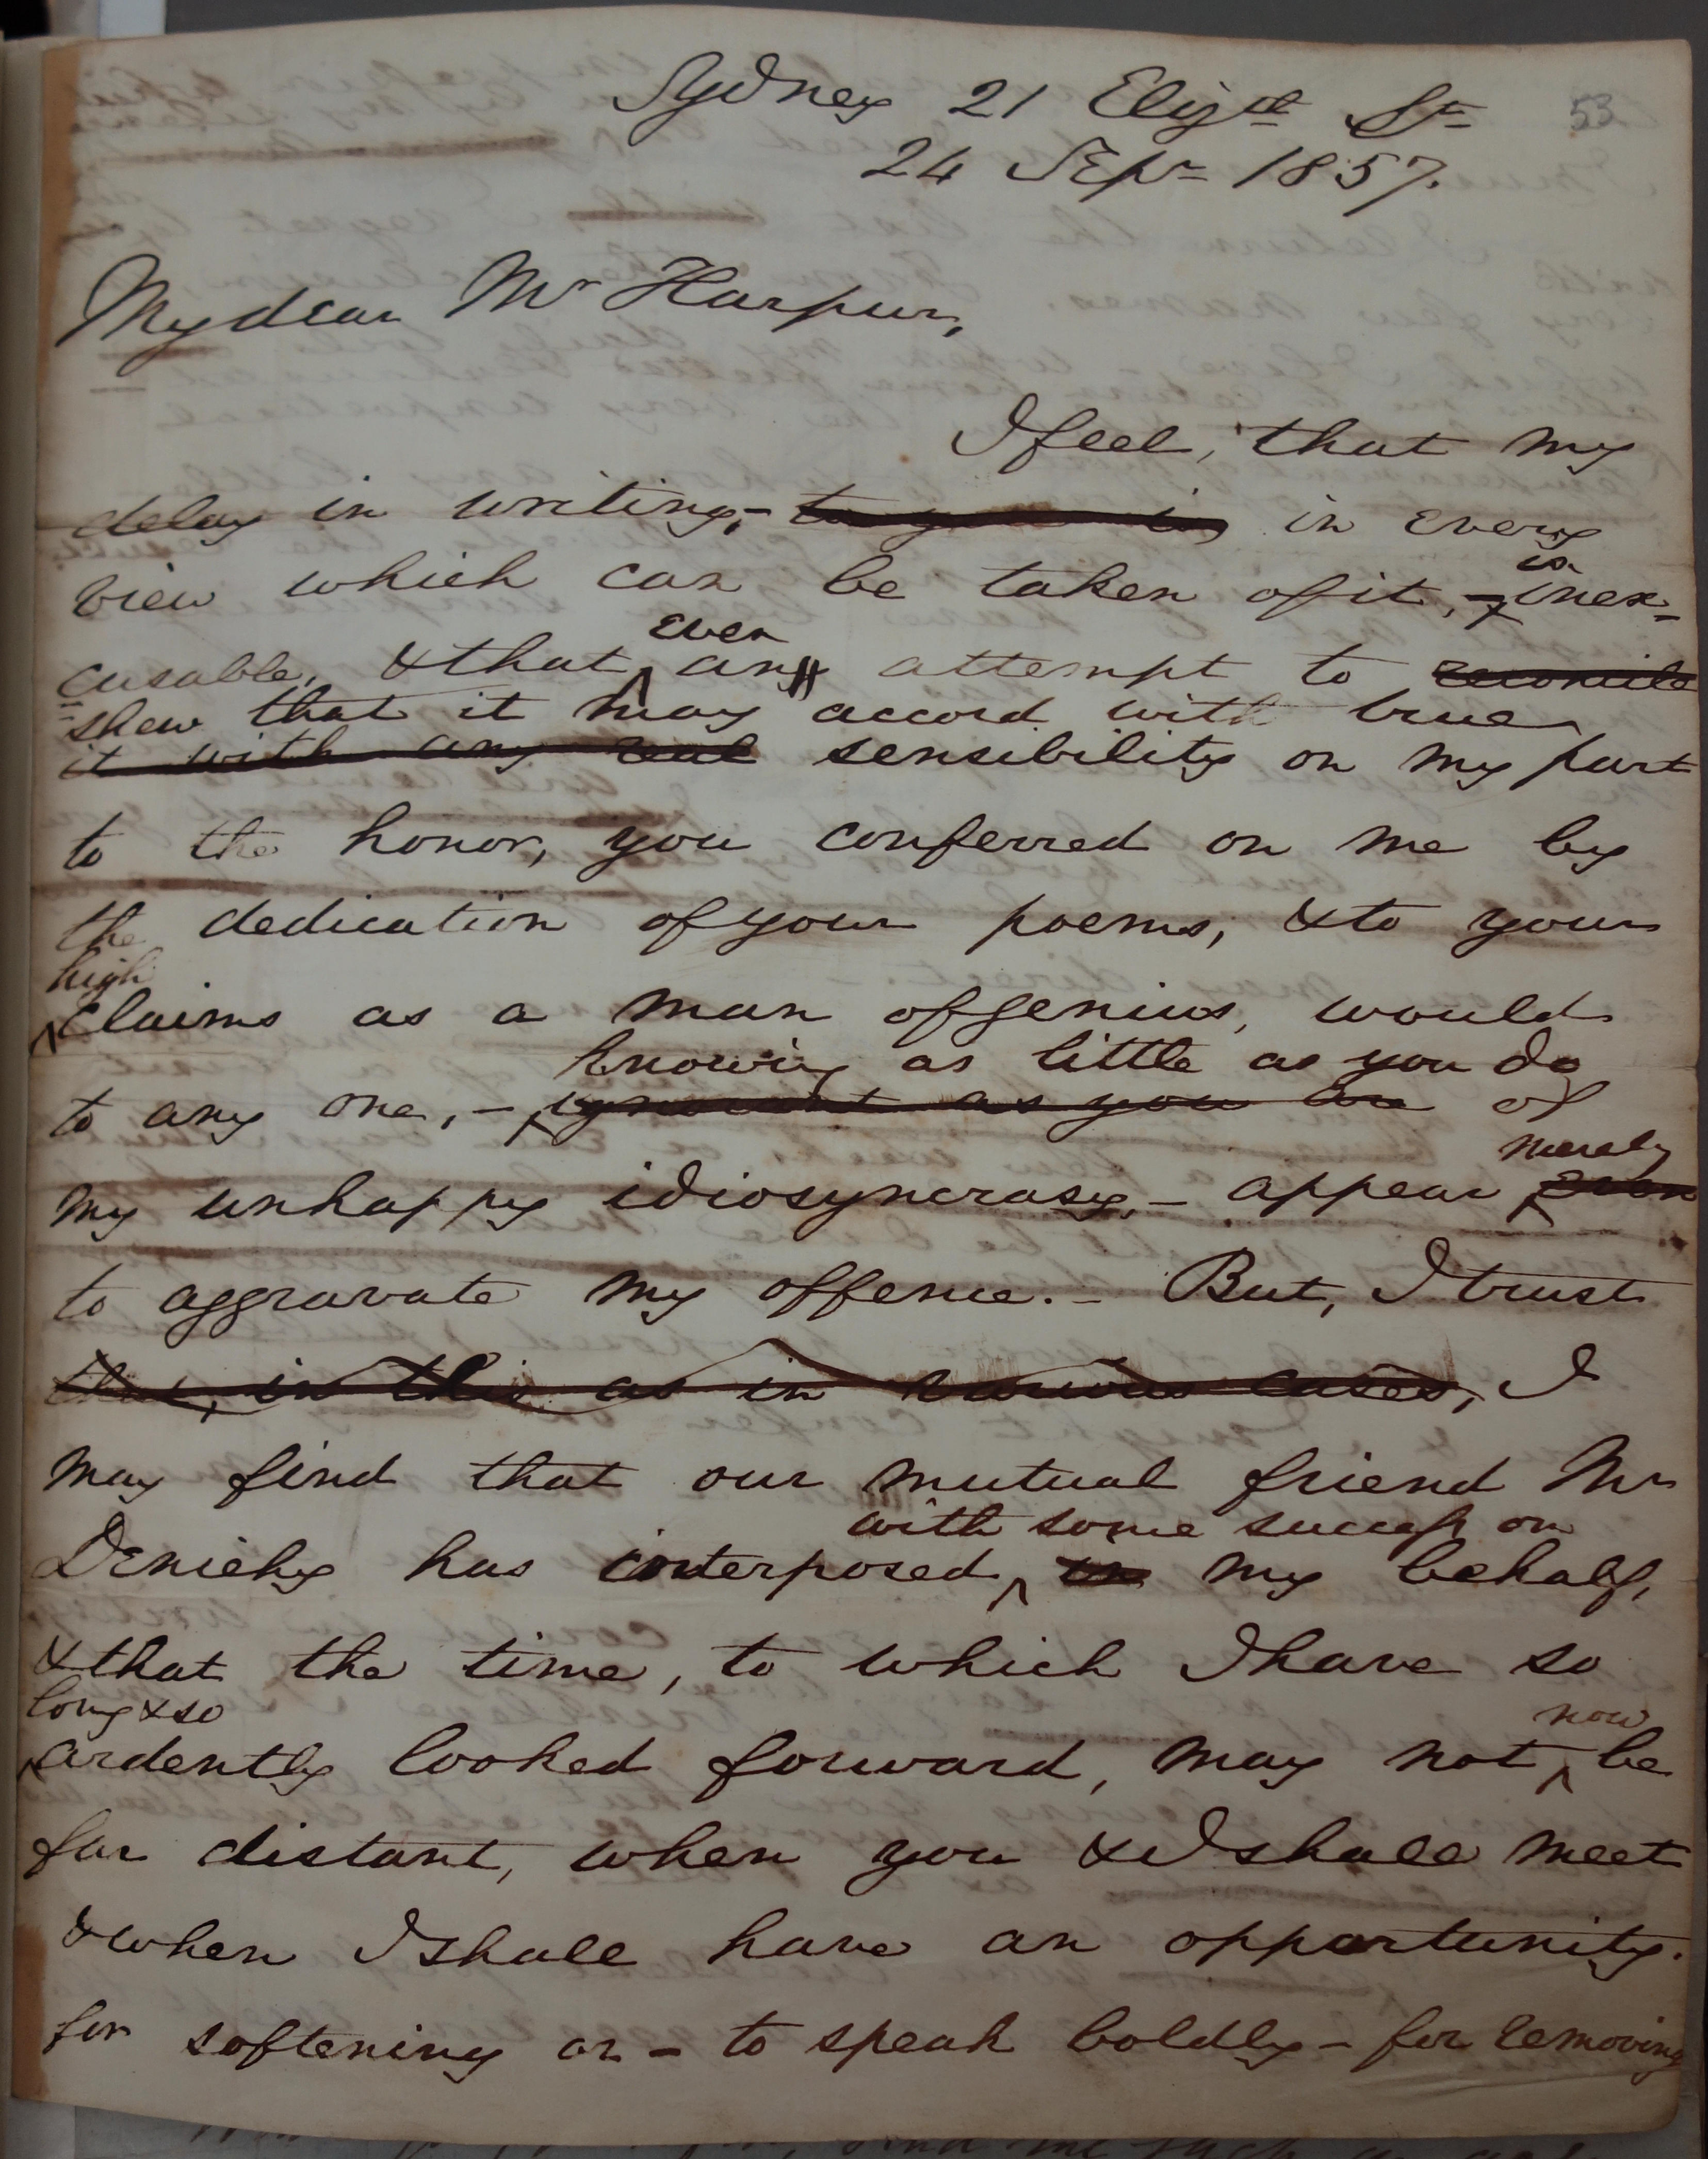 Sydney 21 Elizth St
53
24 Sepr 1857.
My dear Mr Harpur,
I feel, that my
delay in writing,- to you is in every
is
view which can be taken of it, - inex-
even
cusable, & that any attempt to reconcile
shew that it may accord with true
it with any real sensibility on my part
to the honor, you conferred on me by
the dedication of your poems, & to your
high
claims as a man of genius, would
knowing as little as you do
to any one, - ignorant as you are of
merely
my unhappy idiosyncrasy, - appear even
to aggravate my offence. - But, I trust
that, in this as in various cases, I
may find that our mutual friend Mr
with some success on
Deniehy has interposed, in my behalf,
& that the time, to which I have so
long & so
now
ardently looked forward, may not be
far distant, when you & I shall meet
& when I shall have an opportunity.
for softening or - to speak boldly - for removing